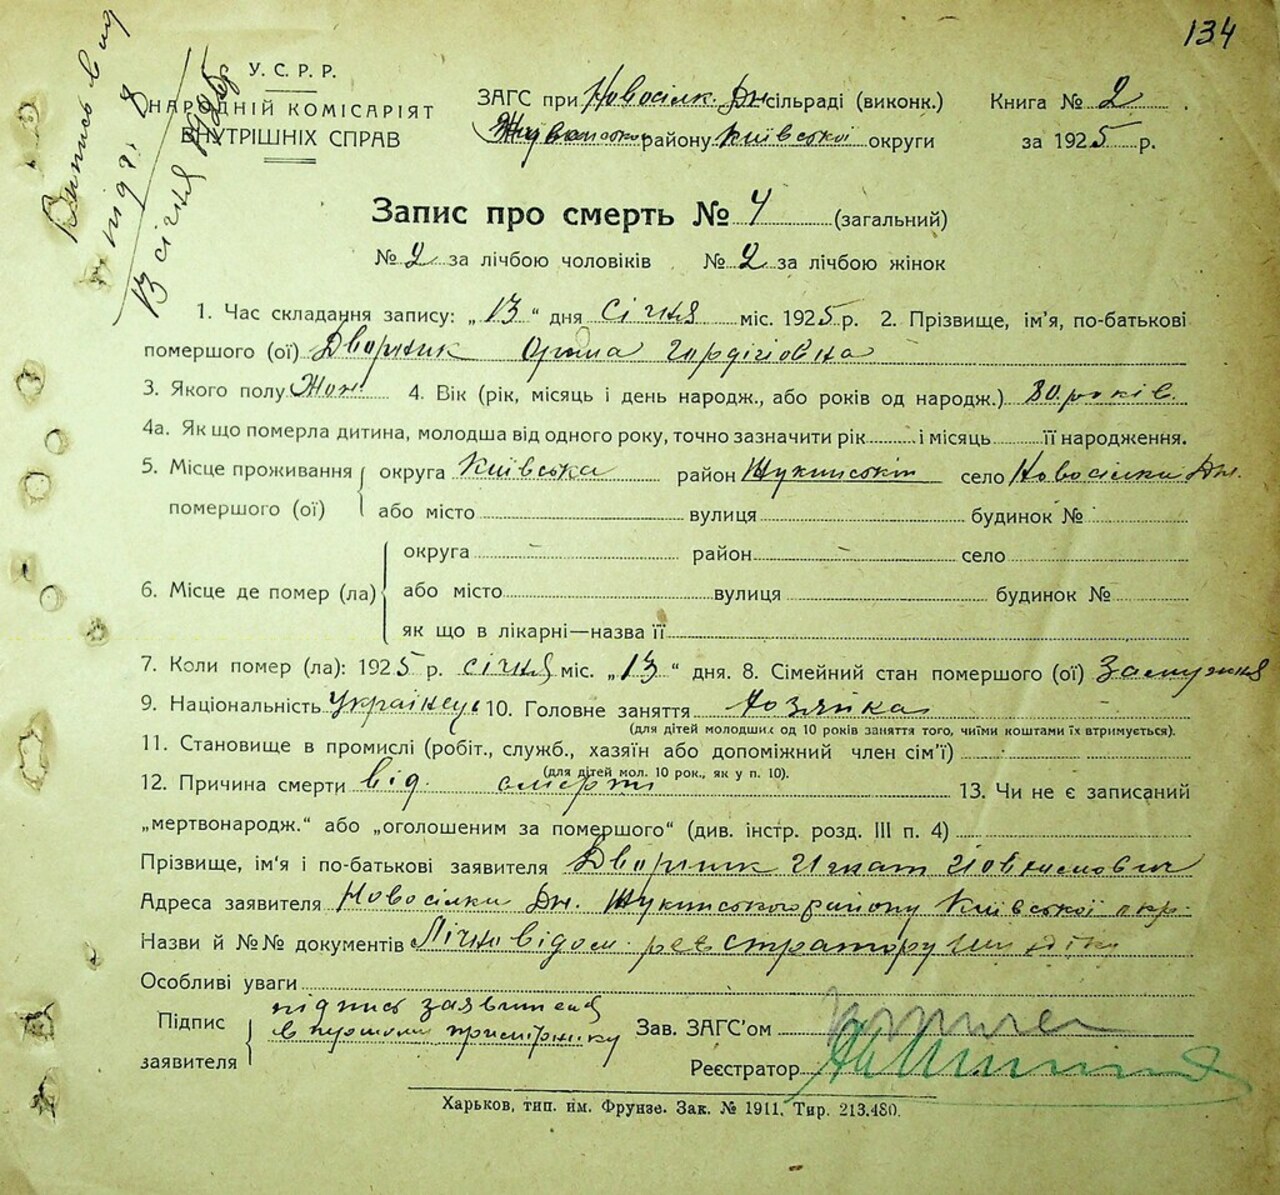 134
Випись видана
під г. 8
13 січня 1925 р
У. С. Р. Р.
НАРОДНІЙ КОМІСАРІЯТ
ВНУТРІШНІХ СПРАВ
ЗАГС при Новосілк. Дн сільраді (виконк.) Книга № 2
району Київської округи за 1925 р.
Запис про смерть № 4 (загальний)
№ 2 за лічбою чоловіків № 2 за лічбою жінок
1. Час складання запису: „13“ дня січня міс. 1925 р. 2. Прізвище, ім'я, по-батькові
помершого (ої) Дворник Орина Гордієвна
3. Якого полу Жон 4. Вік (рік, місяць і день народж., або років од народж.) 80 років.
4а. Як що померла дитина, молодша від одного року, точно зазначити рік і місяць її народження.
5. Місце проживання округа Київська район село Новосілки Дн.
помершого (ої) або місто вулиця будинок №
округа район село
6. Місце де помер (ла) або місто вулиця будинок №
як що в лікарні—назва її
7. Коли помер (ла): 1925 р. січня міс. „13“ дня. 8. Сімейний стан помершого (ої) Замужня
9. Національність 10. Головне заняття Хозяйка
(для дітей молодших од 10 років заняття того, чиїми коштами їх втримується).
11. Становище в промислі (робіт., служб., хазяїн або допоміжний член сім'ї)
(для дітей мол. 10 рок., як у п. 10).
12. Причина смерти від смерти 13. Чи не є записаний
„мертвонародж.“ або „оголошеним за помершого“ (див. інстр. розд. III п. 4)
Прізвище, ім'я і по-батькові заявителя Дворник Игнат
Адреса заявителя Новосілки Дн. району Київської окр.
Назви й №№ документів Лічно відом. реєстратору
Особливі уваги
Підпис заявителя підпис заявителя
в першому примірнику
Зав. ЗАГС'ом
Реєстратор
Харьков, тип. им. Фрунзе. Зак. № 1911. Тир. 213.480.